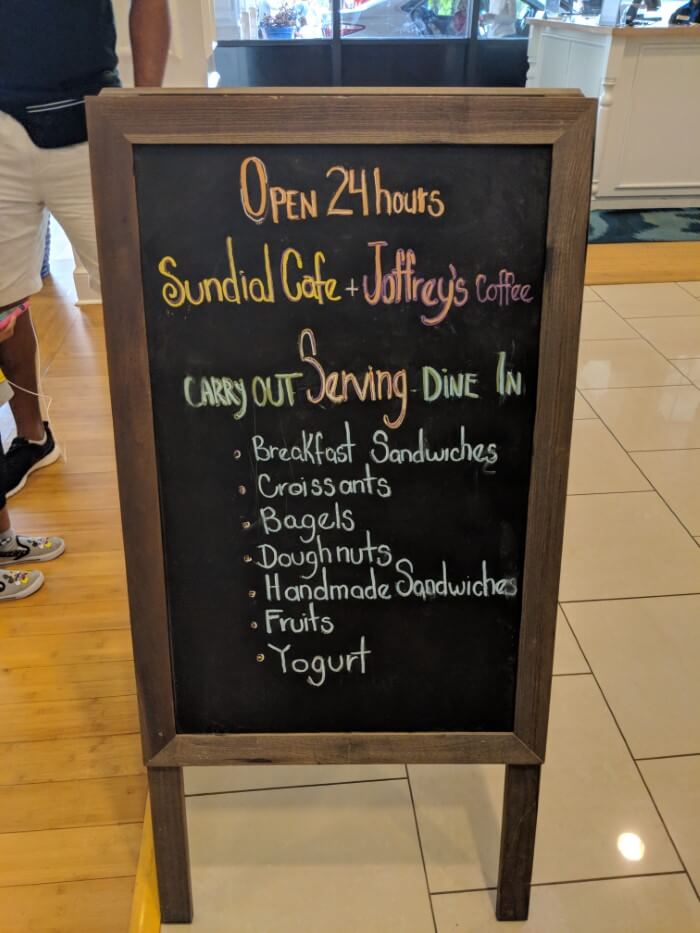 Open 24 hours
Sundial Cafe + Joffrey's Coffee
CARRY OUT Serving DINE IN
• Breakfast Sandwiches
• Croissants
• Bagels
• Doughnuts
• Handmade Sandwiches
• Fruits
• Yogurt